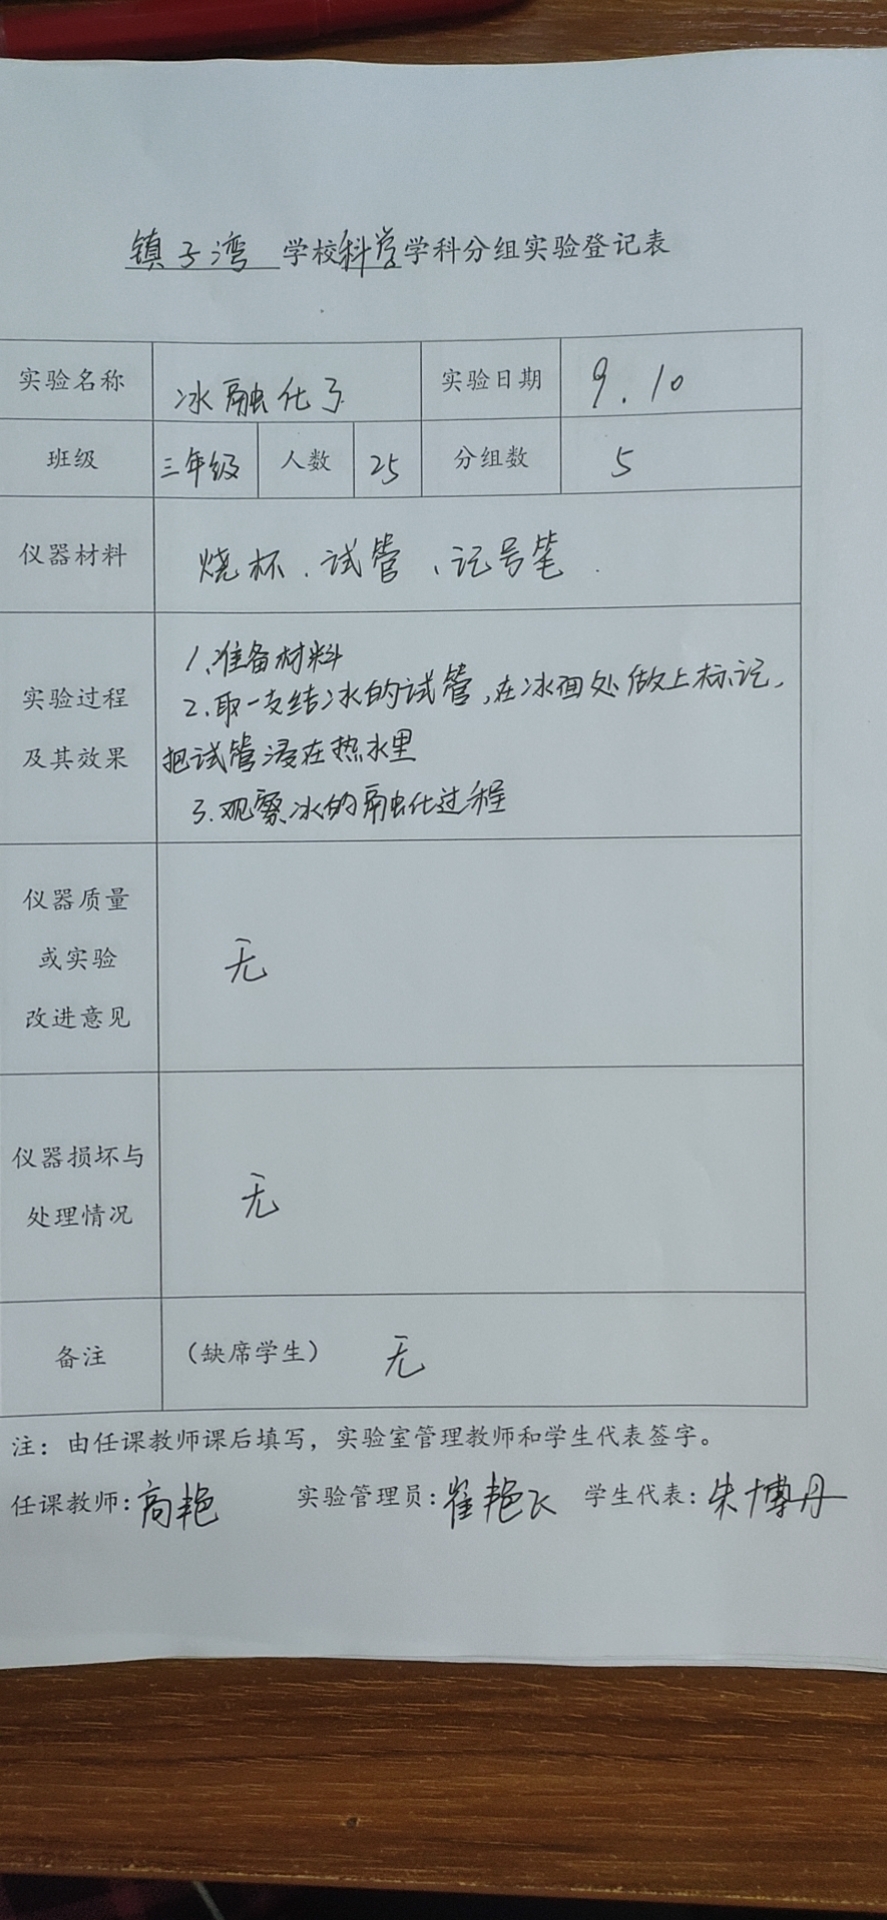 镇子湾 学校科学学科分组实验登记表
实验名称 冰融化了 实验日期 9.10
班级 三年级 人数 25 分组数 5
仪器材料 烧杯、试管、记号笔.
实验过程
及其效果
1、准备材料
2、取一支结冰的试管,在冰面处做上标记,
把试管浸在热水里
3、观察冰的融化过程
仪器质量
或实验
改进意见
无
仪器损坏与
处理情况
无
备注 (缺席学生) 无
注:由任课教师课后填写,实验室管理教师和学生代表签字。
任课教师:高艳 实验管理员:崔艳飞 学生代表:朱博丹